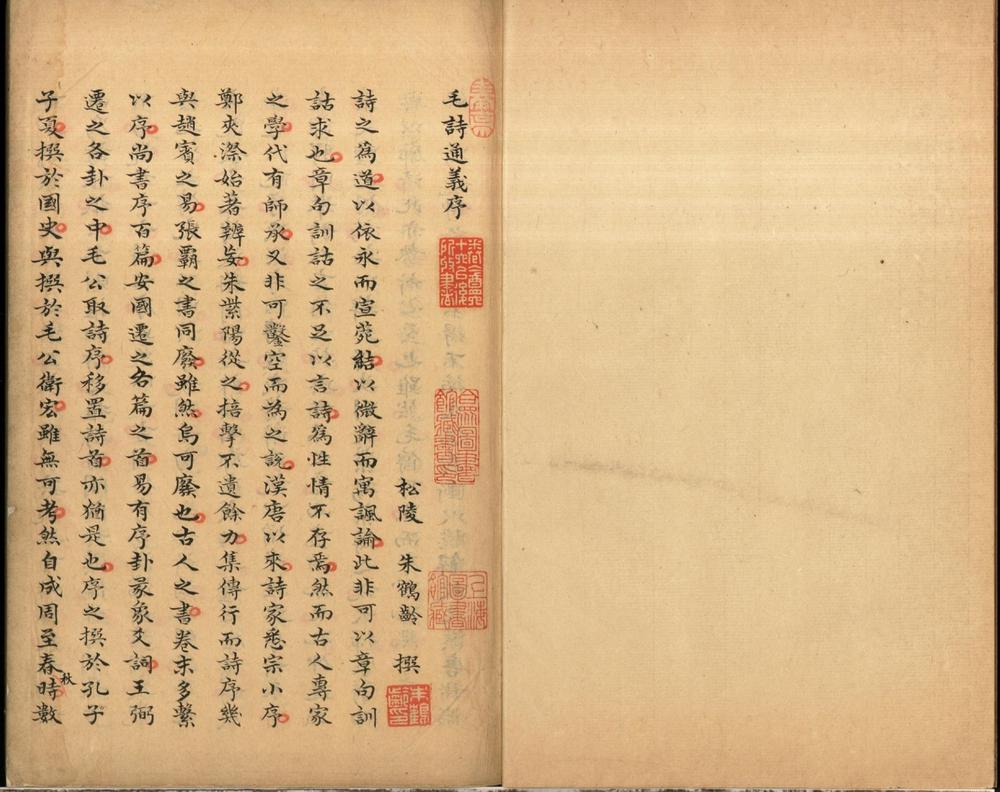 毛詩通義序
松陵 朱鶴齡 撰
詩之爲道以依永而宣菀結以微辭而寓諷論此非可以章句訓
詁求也章句訓詁之不足以言詩爲性情不存焉然而古人專家
之學代有師承又非可鑿空而爲之說漢唐以來詩家悉宗小序
鄭夾漈始著辨妄朱紫陽從之掊擊不遺餘力集傳行而詩序幾
與趙賓之易張霸之書同廢雖然烏可廢也古人之書卷末多繫
以序尚書序百篇安國遷之各篇之首易有序卦彖象爻詞王弼
遷之各卦之中毛公取詩序移置詩首亦猶是也序之撰於孔子
子夏撰於國史與撰於毛公衛宏雖無可考然自成周至春秋時數
上海圖書館藏
朱鶴齡印